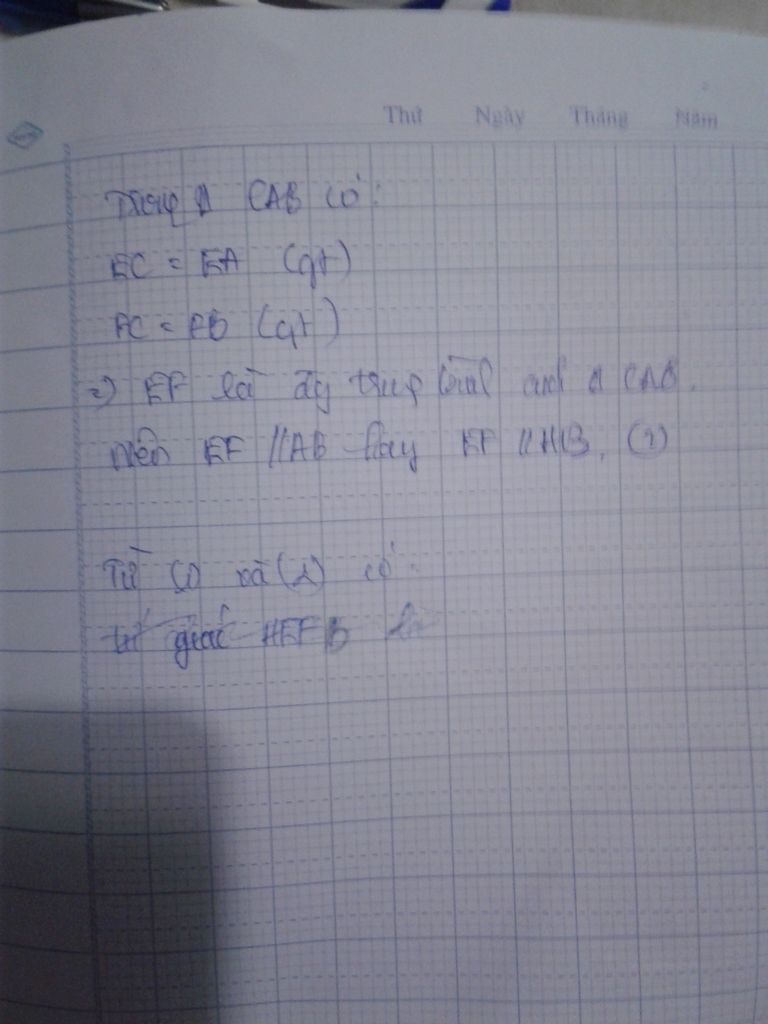 Thứ Ngày Tháng Năm
Trong Δ CAB có:
EC = EA (gt)
FC = FB (gt)
=> EF là đg trung bình Δ CAB.
nên EF // AB hay EF // HB. (2)
Từ (1) và (2) có:
tứ giác HEFB là